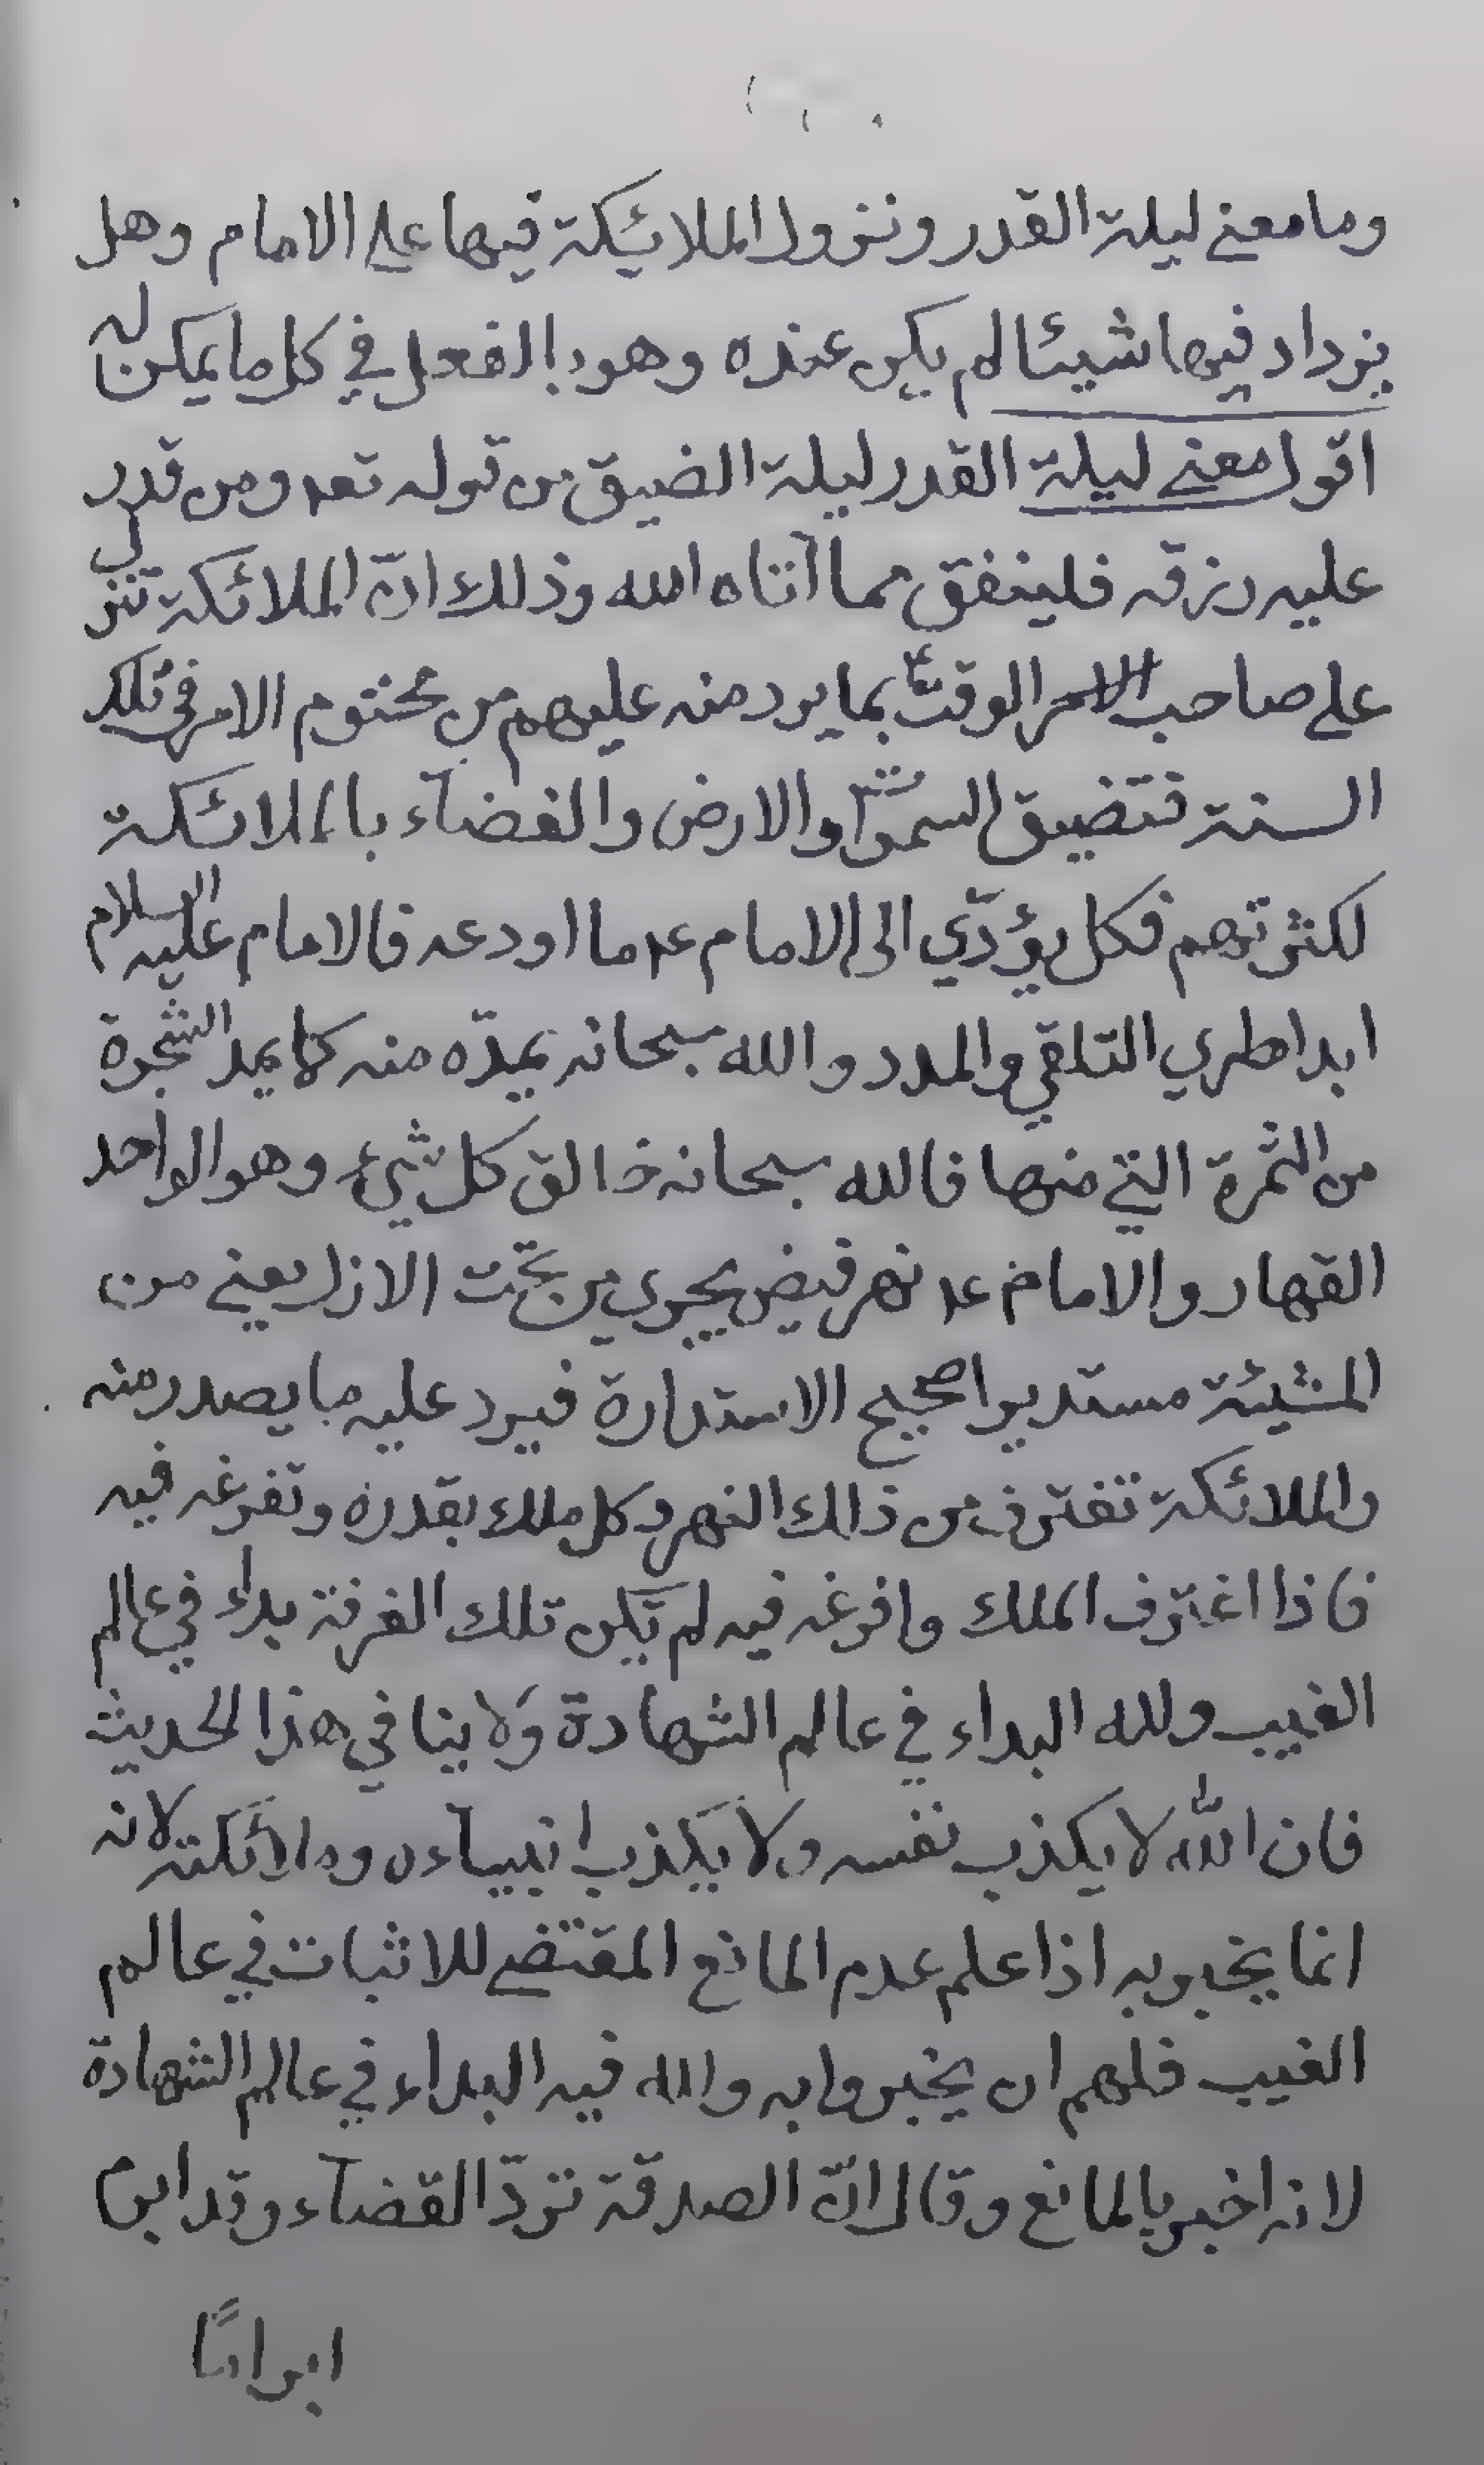 وما معنى ليلة القدر ونزول الملائيكة فيها على الامام وهل
يزداد فيها شيئا لم يكن عنده وهو بالفعل في كل ما يمكن له
اقول معنى ليلة القدر ليلة الضيق من قوله تعه ومن قدر
عليه رزقه فلينفق مما آتاه الله وذلك انّ الملائكة تنزل
على صاحب الامر الوقت ع بما يرد منه عليهم من محتوم الامر في تلك
السنة فتضيق السموات والارض والفضآء بالملائكة
لكثرتهم فكل يؤدّي الى الامام عه ما اودعه فالامام عليه السلام
ابدا طري التلقي والمدد والله سبحانه يمدّه منه كما يمد الشجرة
من الثمرة التي منها فالله سبحانه خالق كل شيء وهو الواحد
القهار والامام عه نهر فيض يجري من تحت الازل يعني من
المشيئة مستديرا صحيح الاستدارة فيرد عليه ما يصدر منه
والملائكة تغترف من ذلك النهر وكل ملك بقدره وتفرغه فيه
فاذا اغترف الملك وافرغه فيه لم تكن تلك الغرفة بداء في عالم
الغيب ولله البداء في عالم الشهادة ولا ينافي هذا الحديث
فان الله لا يكذب نفسه ولا يكذب انبيآءه وملائكته لانه
انما يخبر به اذا علم عدم المانع المقتضي للاثبات في عالم
الغيب فلهم ان يخبروا به والله فيه البداء في عالم الشهادة
لانه اخبر بالمانع وقال انّ الصدقة تردّ القضآء وقد ابرم
ابراماً